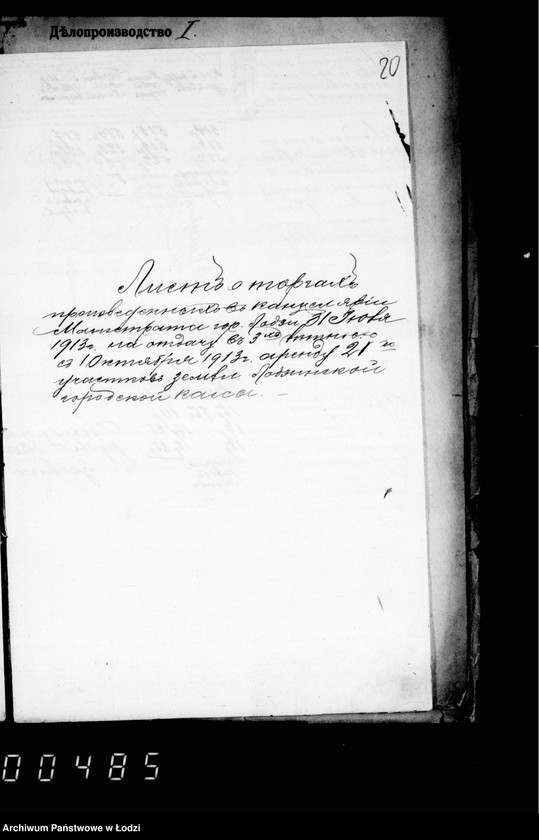 Дѣлопроизводство I.
20
Листъ о торгахъ
произведенныхъ въ канцеляріи
Магистрата гор. Лодзи 31 Іюля
1913г. на отдачу въ 3хъ лѣтнюю
съ 1 Октября 1913г. аренду 21го
участковъ земли Лодзинской
городской кассы. —
00485
Archiwum Państwowe w Łodzi